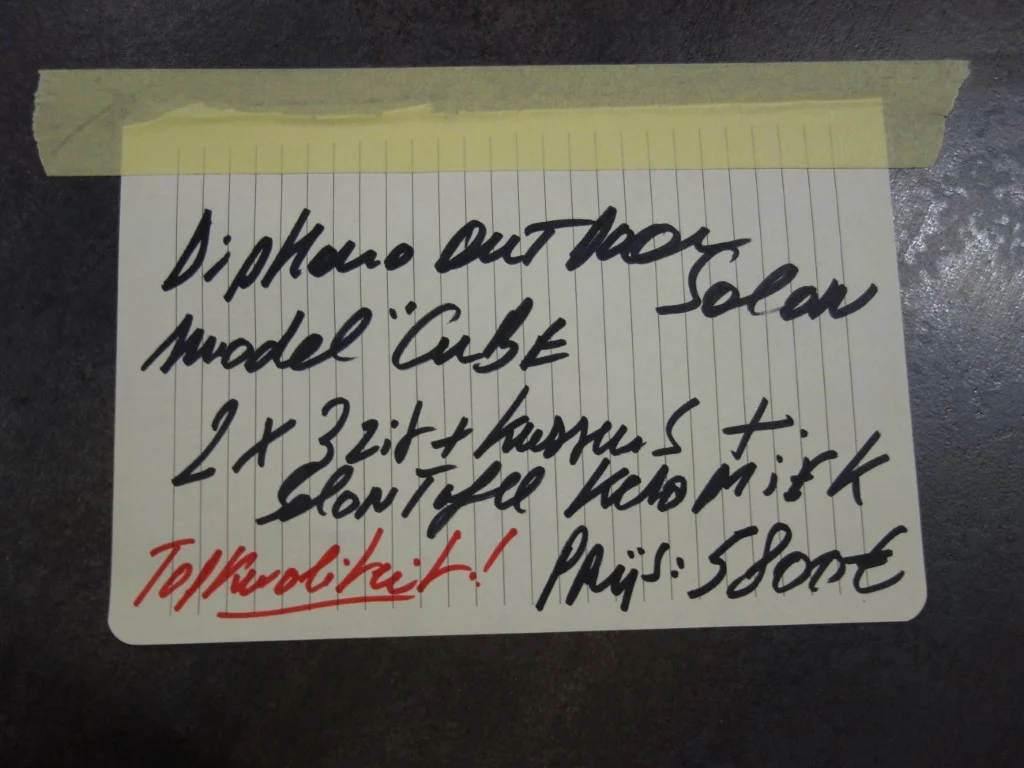 Diphano OUTDOOR
Salon
model "CuBE
2 x 3 zit + kussens +
SalonTafel KERAMiEK
Topkwaliteit!
PRijs: 5800€